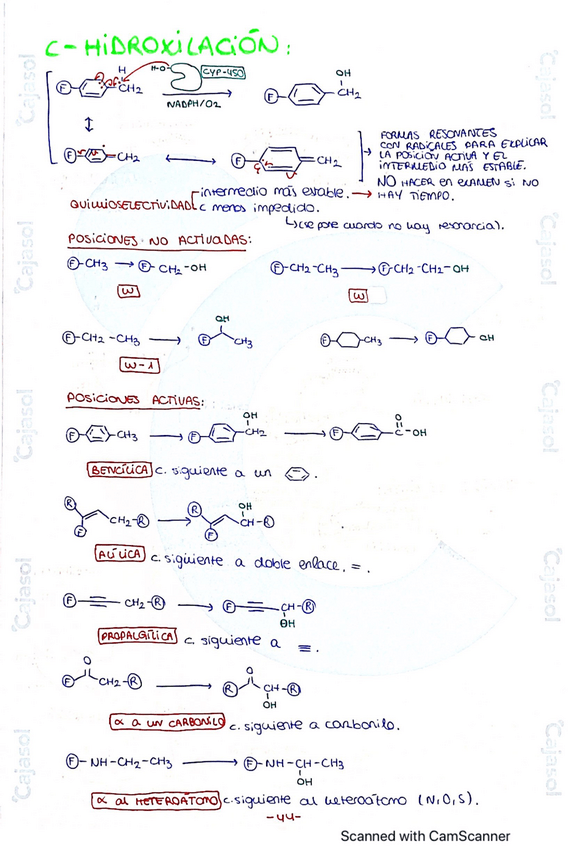 C-HIDROXILACIÓN:
H
H-O-
CYP-450
OH
F
CH2
NADPH/O2
F
CH2
F
=CH2
F
=CH2
FORMAS RESONANTES
CON RADICALES PARA EXPLICAR
LA POSICIÓN ACTIVA Y EL
INTERMEDIO MÁS ESTABLE.
NO HACER EN EXAMEN SI NO
HAY TIEMPO.
QUIMIOSELECTIVIDAD
intermedio más estable.
C menos impedido.
(se pone cuando no hay resonancia).
POSICIONES NO ACTIVADAS:
F-CH3 → F-CH2-OH
F-CH2-CH3 → F-CH2-CH2-OH
W
W
F-CH2-CH3 → F OH CH3
F CH3 → F OH
W-1
POSICIONES ACTIVAS:
F CH3 → F OH CH2 → F O C-OH
BENCÍLICA c. siguiente a un
R F CH2-R → R F OH CH-R
ALÍLICA c. siguiente a doble enlace, =.
F-≡-CH2-R → F-≡-CH-R
OH
PROPALGÍLICA c. siguiente a ≡.
F O CH2-R → R O CH-R
OH
α a un CARBONILO c. siguiente a carbonilo.
F-NH-CH2-CH3 → F-NH-CH-CH3
OH
α al HETEROÁTOMO c. siguiente al heteroátomo (N,O,S).
-44-
Scanned with CamScanner
Cajasol
Cajasol
Cajasol
Cajasol
Cajasol
Cajasol
Cajasol
Cajasol
Cajasol
Cajasol